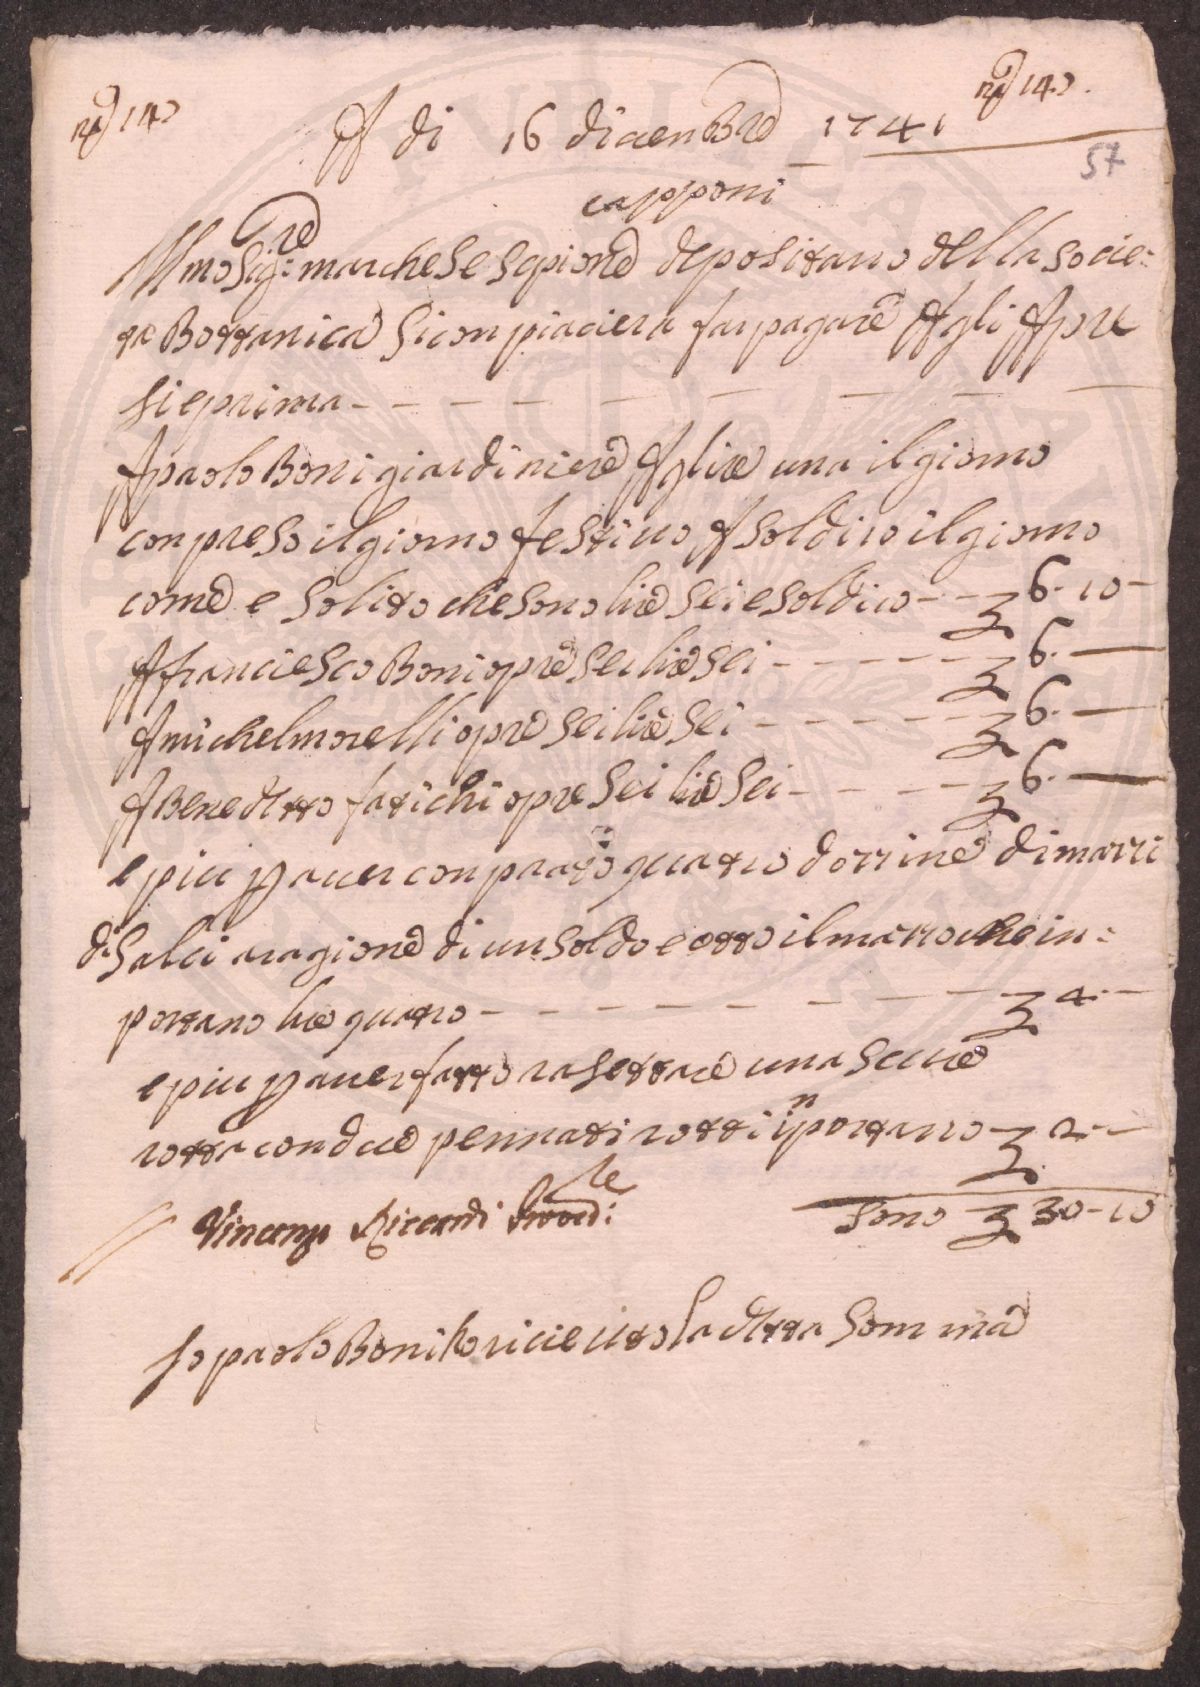 no 140
no 140.
A di 16 dicenbre 1741
57
capponi
Illmo Sig:re marchese Scpione depositario della socie:
ta Bottanica si conpiaciera far pagare A gli Apre
si e prima
A paolo Boni giardiniere A lire una il giorno
conpreso il giorno festiuo A soldi 10 il giorno
come e solito che sono lire sei e soldi 10 6. 10
A franciesco Boni opre sei lire sei 6.
A michel morelli opre sei lire sei 6.
A Benedetto fatichi opre sei lire sei 6.
e piu p auer conprato quatro dozzine di mazzi
di Salci a ragione di un soldo e otto il mazzo che in:
portano lire quatro 4.
e piu p auer fatto rasettare una scure
rotta con due pennati rotti inportano 2.
Vincenzo Riccardi Proved:re
Sono 30-10
Io paolo Boni ho ricieuto la detta somma